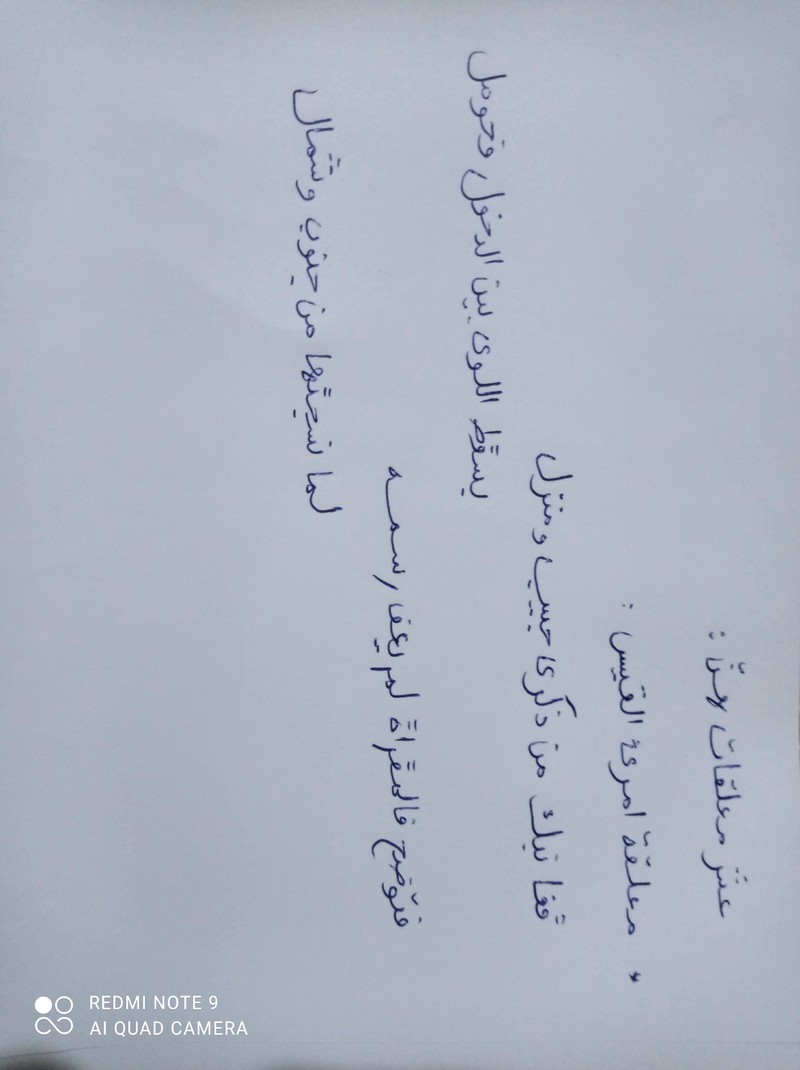 عشر معلقات هنّ :
* معلقة امرئ القيس :
قفا نبك من ذكرى حبيب ومنزل
بسقط اللوى بين الدخول وحومل
فتوضح فالمقراة لم يعف رسمه
لما نسجتها من جنوب وشمال
REDMI NOTE 9
AI QUAD CAMERA